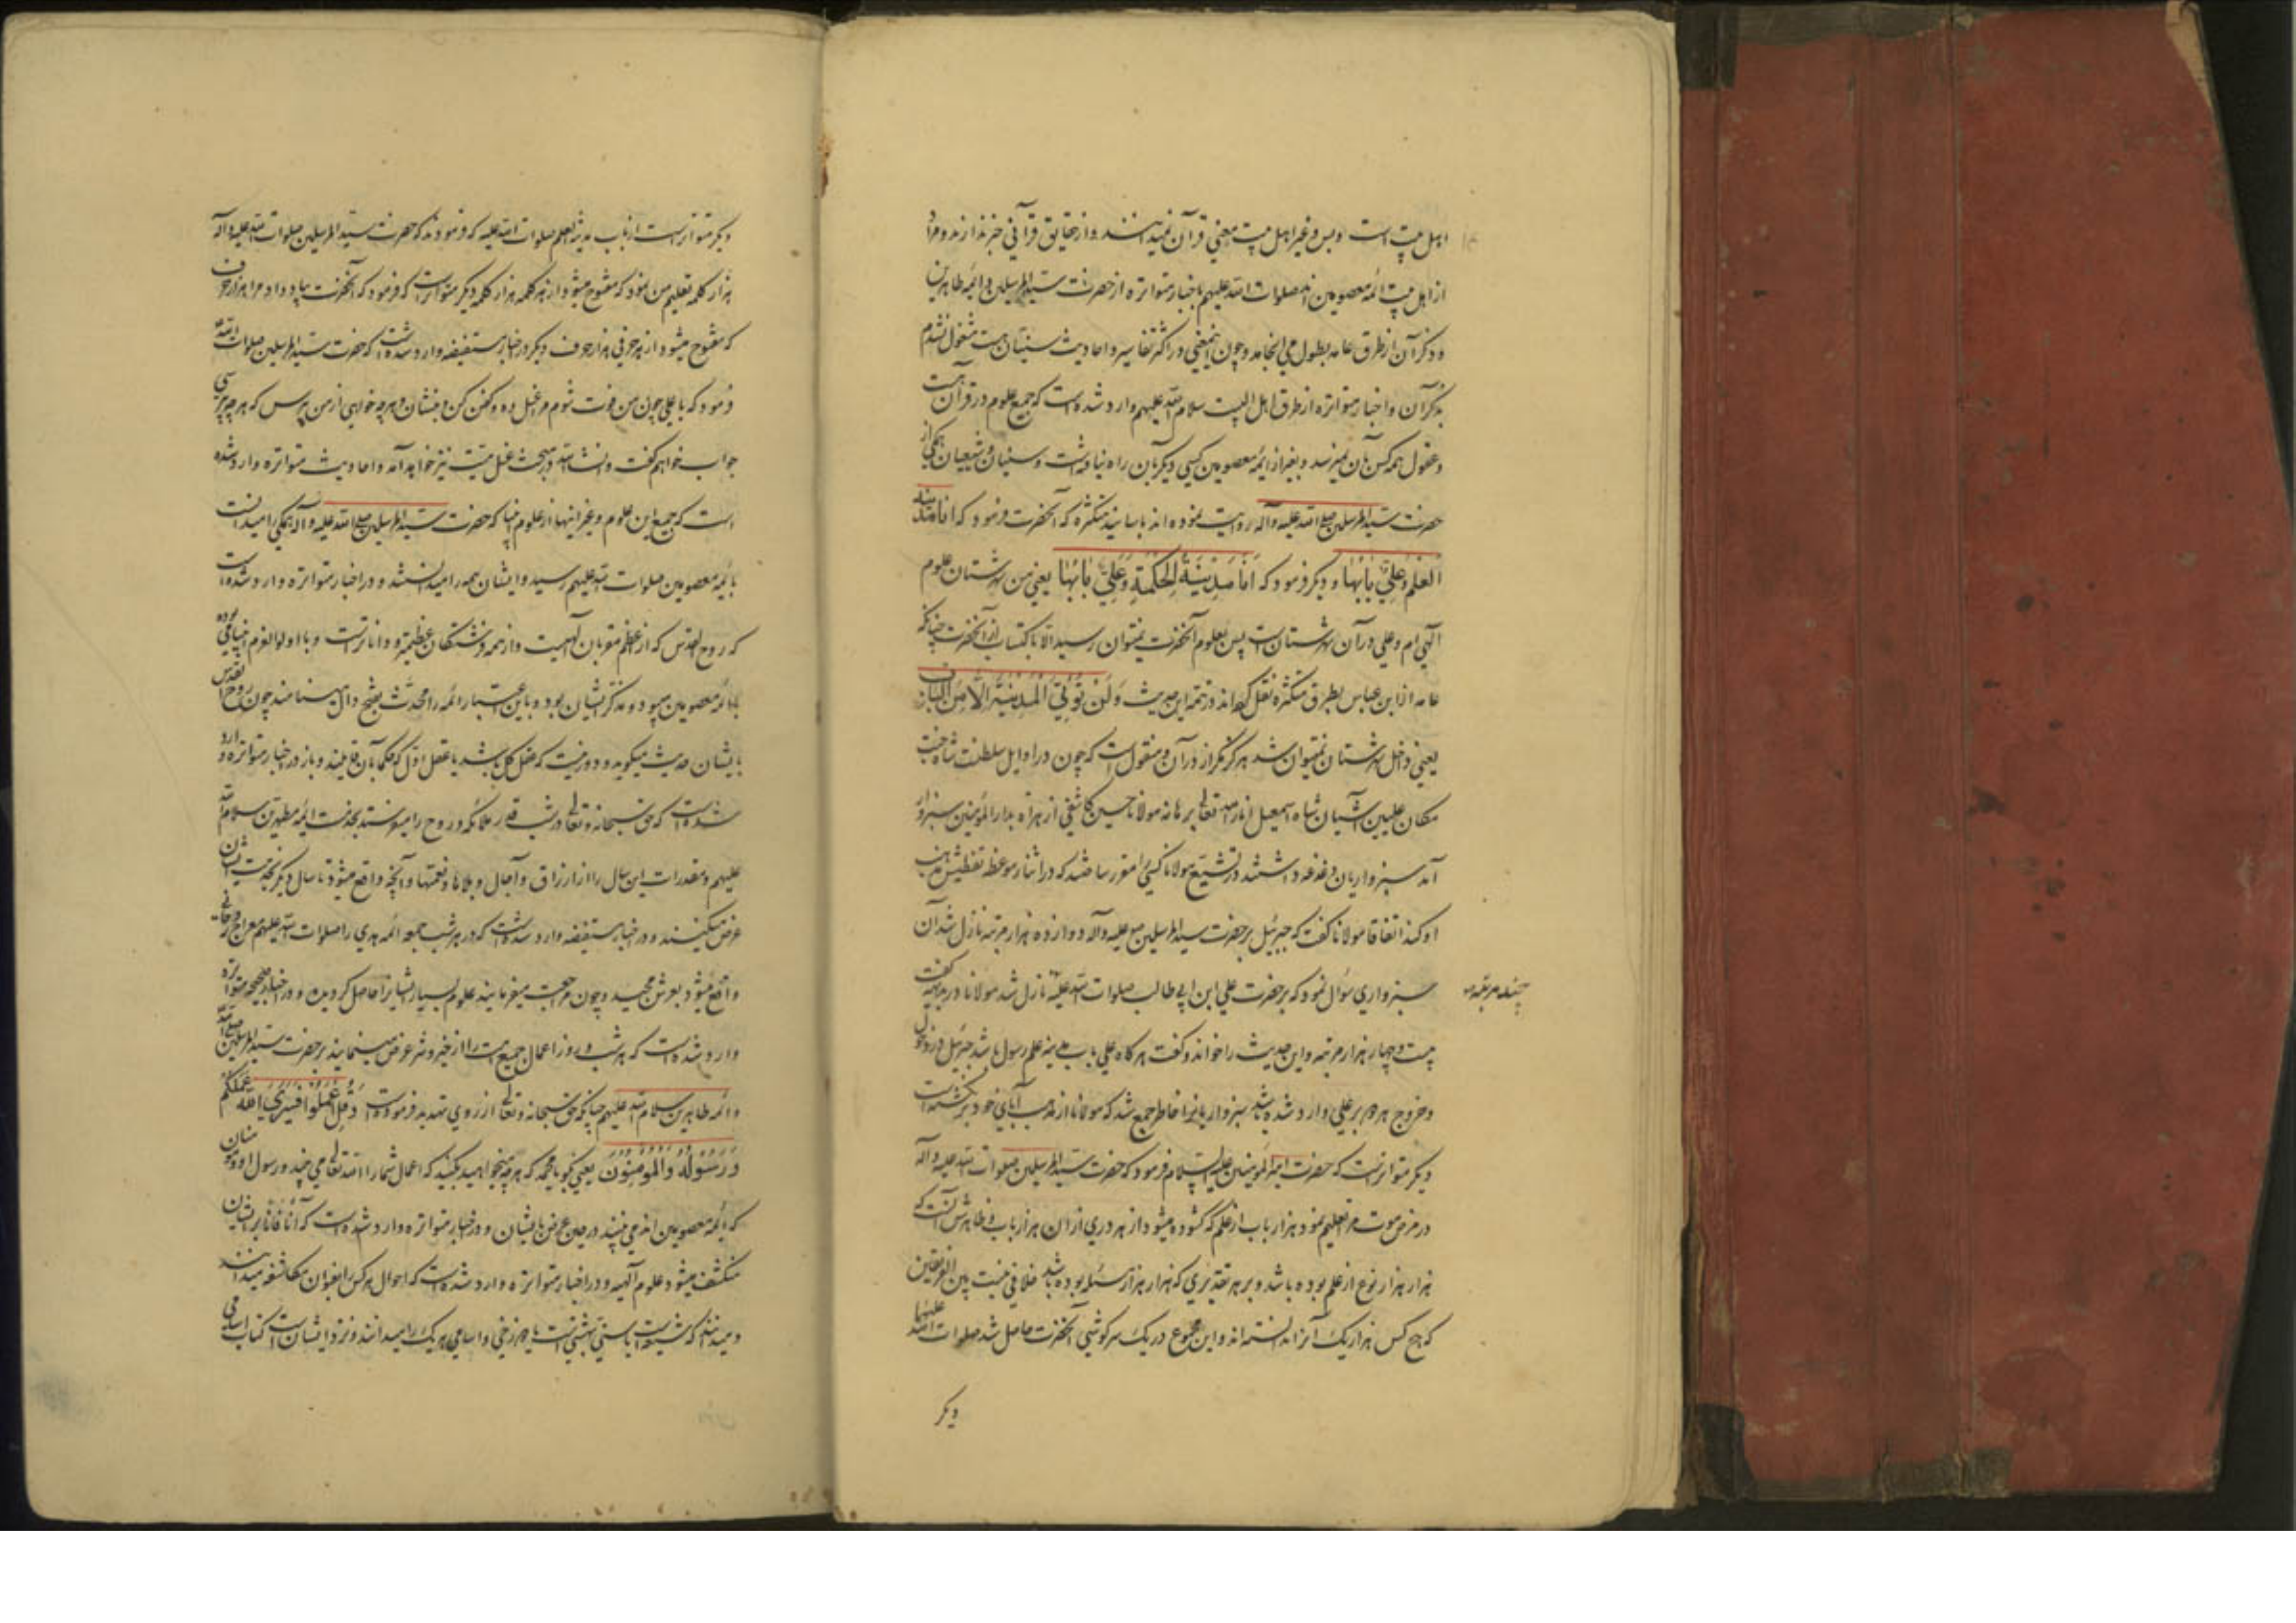 اهل بیت است و بس و غیر اهل بیت معنی قرآن نمیدانند و از حقایق قرآنی خبر ندارند و مراد
از اهل بیت ائمه معصومین اند صلوات الله علیهم باخبار متواتره از حضرت سید المرسلین و ائمه طاهرین
و ذکر آن از طرق عامه بطول می انجامد و چون اینمعنی در اکثر تفاسیر و احادیث سنیان هست مشغول نشدم
بذکر آن و اخبار متواتره از طرق اهل البیت سلام الله علیهم وارد شده است که جمیع علوم در قرآن هست
و عقول همه کس بآن نمیرسد و بغیر از ائمه معصومین کسی دیگر بآن راه نیافته است و سنیان و شیعیان همگی از
حضرت سید المرسلین صلی الله علیه وآله روایت نموده اند باسانید متکثره که آنحضرت فرمود که انا مدینة
العلم وعلی بابها و دیگر فرمود که انا مدینة الحکمة وعلی بابها یعنی من شهرستان علوم
الهی ام و علی در آن شهرستان است پس بعلوم آنحضرت نمیتوان رسید الا باکتساب از آنحضرت چنانکه
عامه از ابن عباس بطرق متکثره نقل کرده اند در تتمه این حدیث ولن تؤتی المدینة الا من الباب
یعنی داخل شهرستان نمیتوان شد هرگز مگر از در آن و منقول است که چون در اوایل سلطنت شاه جنت
مکان علیین آشیان شاه اسمعیل انار الله تعالی برهانه مولانا حسین کاشفی از هراة بدار المؤمنین سبزوار
آمد سبزواریان دغدغه داشتند در تشیع مولانا کسی را مقرر ساختند که در اثنای موعظه تفتیش مذهب
او کند اتفاقا مولانا گفت که جبرئیل بر حضرت سید المرسلین صلع علیه وآله دوازده هزار مرتبه نازل شد آن
سبزواری سؤال نمود که بر حضرت علی ابن ابی طالب صلوات الله علیه نازل شد مولانا در بدیهه گفت
چند مرتبه
بیست و چهار هزار مرتبه و این حدیث را خواند و گفت هرگاه علی باب مدینه علم رسول باشد جبرئیل در دخول
و خروج هر دو بر علی وارد شده باشد سبزواریانرا خاطر جمع شد که مولانا از مذهب آبای خود برگشته است
دیگر متواتر است که حضرت امیر المؤمنین علیه السلام فرمود که حضرت سید المرسلین صلوات الله علیه وآله
در مرض موت مرا تعلیم نمود هزار باب از علم که گشوده میشود از هر دری از ان هزار باب و ظاهرش آنست که
هزار هزار نوع از علم بوده باشد و بر هر تقدیری که هزار هزار مسئله بوده باشد خلافی نیست بین الفریقین
که هیچ کس هزار یک آنرا ندانسته اند و این مجموع در یک سرگوشی آنحضرت حاصل شد صلوات الله علیهما
دیگر
دیگر متواتر است از باب مدینة العلم صلوات الله علیه که فرمودند که حضرت سید المرسلین صلوات الله علیه وآله
هزار کلمه تعلیم من نمود که مفتوح میشود از هر کلمه هزار کلمه دیگر متواتر است که فرمود که آنحضرت یاد داد مرا هزار حرف
که مفتوح میشود از هر حرفی هزار حرف و دیگر در اخبار مستفیضه وارد شده است که حضرت سید المرسلین صلوات الله
فرمود که یا علی چون من فوت شوم مرا غسل ده و کفن کن و بنشان و هرچه خواهی از من بپرس که هرچه پرسی
جواب خواهم گفت و انشاء الله در مبحث غسل میت نیز خواهد آمد و احادیث متواتره وارد شده
است که جمیع این علوم و غیر اینها از علوم انبیا که حضرت سید المرسلین صلی الله علیه وآله همگی را میدانست
بائمه معصومین صلوات الله علیهم رسید و ایشان همه را میدانستند و در اخبار متواتره وارد شده است
که روح القدس که از اعظم مقربان الهیست و از همه فرشتگان عظیمتر و داناترست و با اولو العزم انبیا می بوده
با ائمه معصومین میبود و مذکر ایشان بود و باین اعتبار ائمه را محدَّث بفتح دال مینامند چون روح القدس
بایشان حدیث میگوید و دور نیست که عقل کل باشد یا عقل اول که حکما بآن قایلند و باز در اخبار متواتره وارد
شده است که حق سبحانه و تعالی در شب قدر ملائکه و روح را میفرستد بخدمت ائمه مطهرین سلام الله
علیهم و مقدرات این سال را از ارزاق و آجال و بلاها و نعمتها و آنچه واقع میشود تا سال دیگر بخدمت ایشان
عرض میکنند و در اخبار مستفیضه وارد شده است که در هر شب جمعه ائمه هدی را صلوات الله علیهم معراج روحانی
واقع میشود بعرش مجید و چون مراجعت میفرمایند علوم بسیار ایشانرا حاصل گردیده و در اخبار صحیحه متواتره
وارد شده است که هر شب و روز اعمال جمیع امت را از خیر و شر عرض مینمایند بر حضرت سید المرسلین صلی الله
و ائمه طاهرین سلام الله علیهم چنانکه حق سبحانه و تعالی از روی تهدید فرموده است وقل اعملوا فسیری الله عملکم
ورسوله والمؤمنون یعنی بگو یا محمد که هرچه میخواهید بکنید که اعمال شما را الله تعالی می بیند و رسول او و مؤمنان
که ائمه معصومین اند می بینند در حین عرض بایشان و در اخبار متواتره وارد شده است که آنا فآنا بر ایشان
منکشف میشود علوم الهیه و در اخبار متواتره وارد شده است که احوال هر کس را بعنوان مکاشفه میدانند
و میدانند که شیعه است یا سنی بهشتی است یا دوزخی و اسامی هر یک را میدانند و نزد ایشان است کتاب اسامی